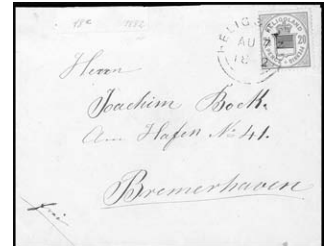 HELIGO
AU
18
HELIGOLAND
20
Herrn
Joachim Bock.
Am Hafen No 41.
Bremerhaven
frei